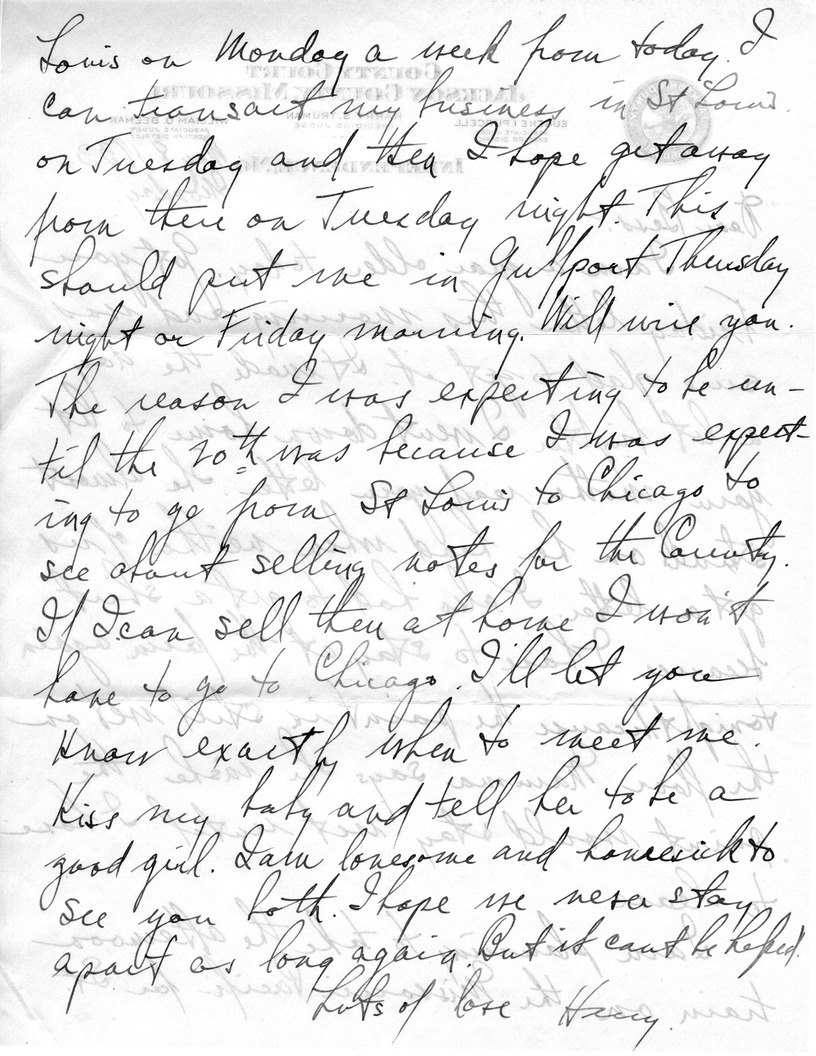 Louis on Monday a week from today. I
can transact my business in St Louis.
on Tuesday and then I hope get away
from there on Tuesday night. This
should put me in Gulfport Thursday
night or Friday morning. Will wire you.
The reason I was expecting to be un-
til the 20th was because I was expect-
ing to go from St Louis to Chicago to
see about selling notes for the County.
If I can sell them at home I won't
have to go to Chicago. I'll let you
know exactly when to meet me.
Kiss my baby and tell her to be a
good girl. I am lonesome and homesick to
see you both. I hope we never stay
apart as long again. But it cant be helped.
Lots of love Harry.